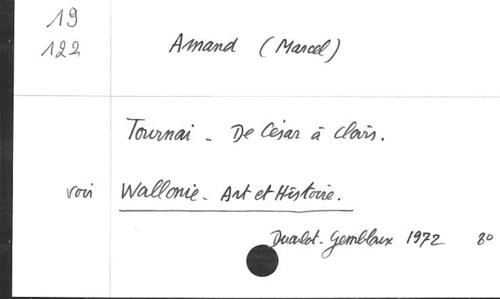 19
122
Amand (Marcel)
Tournai - De César à Clovis.
voir Wallonie - Art et Histoire.
Duculot - Gembloux 1972 8°